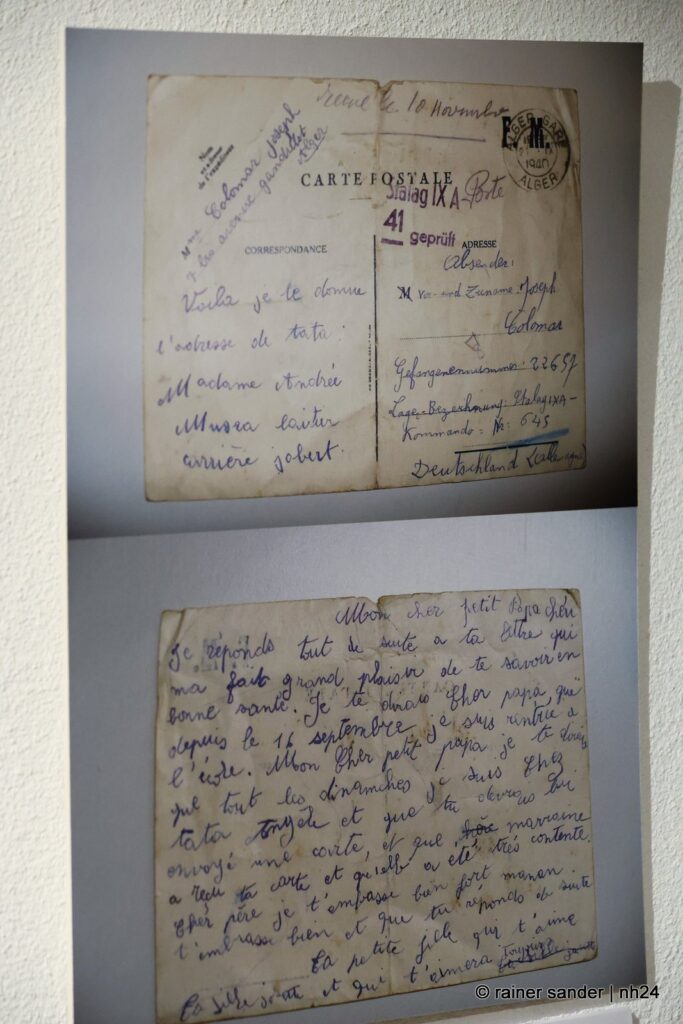 recue le 10 novembre
Nom
et adresse
de l'expéditeur
Mme Colomar Joseph
avenue
Alger
CARTE POSTALE
F. M.
ALGER GARE
1940
ALGER
Stalag IX A - Poste
41
geprüft
CORRESPONDANCE
ADRESSE
Voila je te donne
l'adresse de tata:
Madame Andrée
Musea laitier
arrière jobert.
Absender:
M Vor- und Zuname: Joseph
Colomar
Gefangenennummer: 22657
Lager-Bezeichnung: Stalag IXA-
Kommando: Nr: 645
Deutschland (allemagne)
Mon cher petit Papa chéri
Je réponds tout de suite a ta lettre qui
ma fait grand plaisir de te savoir en
bonne santé. Je te dirais Cher papa que
depuis le 16 septembre je suis rentrée a
l'école. Mon Cher petit papa je te
que tout les dimanches je suis Chez
tata Angèle et que tu devrais lui
envoyé une carte, et que marraine
a reçu ta carte et qu'elle a été très contente.
Cher père je t'embrasse bien fort manan
t'embrasse bien et que tu réponds de suite
Ta petite fille qui t'aime
et qui t'aimera Toujours
© rainer sander | nh24